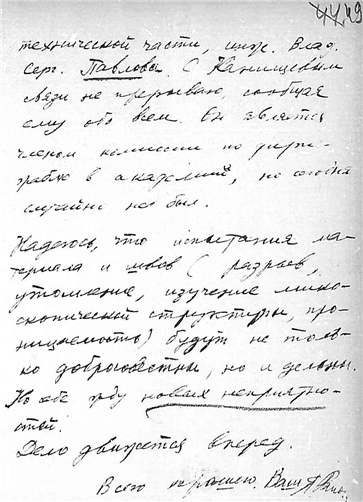 технической части, инж. Влад.
Серг. Павлова. С Канищевым
связи не прерываю, сообщая
ему обо всем. Он является
членом комиссии по дири-
жаблю в академии, но сегодня
случайно не был.
Надеюсь, что испытания ма-
териала и швов (разрыв,
утомление, изучение микро-
скопической структуры, про-
ницаемость) будут не толь-
ко добросовестны, но и дельны.
Но все жду новых неприятно-
стей.
Дело движется вперед.
Всего хорошего. Ваш